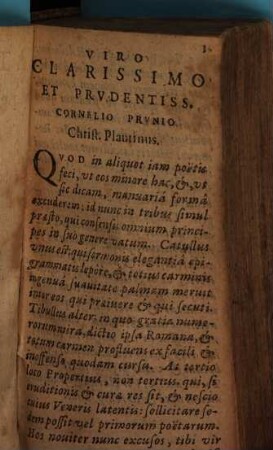 VIRO
CLARISSIMO
ET PRVDENTISS.
CORNELIO PRVNIO.
Christ. Plantinus.
QVOD in aliquot iam poëtis
feci, vt eos minore hac, &, vt
sic dicam, manuaria formâ
excuderem: id nunc in tribus simul
præsto, qui consensu omnium princi-
pes in suo genere vatum. Catullus
vnus est: qui sermonis elegantiâ epi-
grammatis lepore, & totius carminis
ingenuâ suauitate palmam meruit
inter eos qui præiuere & qui secuti.
Tibullus alter: in quo gratia nume-
rorum mira, dictio ipsa Romana, &
totum carmen profluens ex facili &
inoffenso quodam cursu. At tertio
loco Propertius, non tertius. qui, si
eruditionis & cura res sit, & nescio
cuius Veneris latentis: sollicitare so-
lem possit vel primorum poëtarum.
Hos nouiter nunc excusos, tibi vir